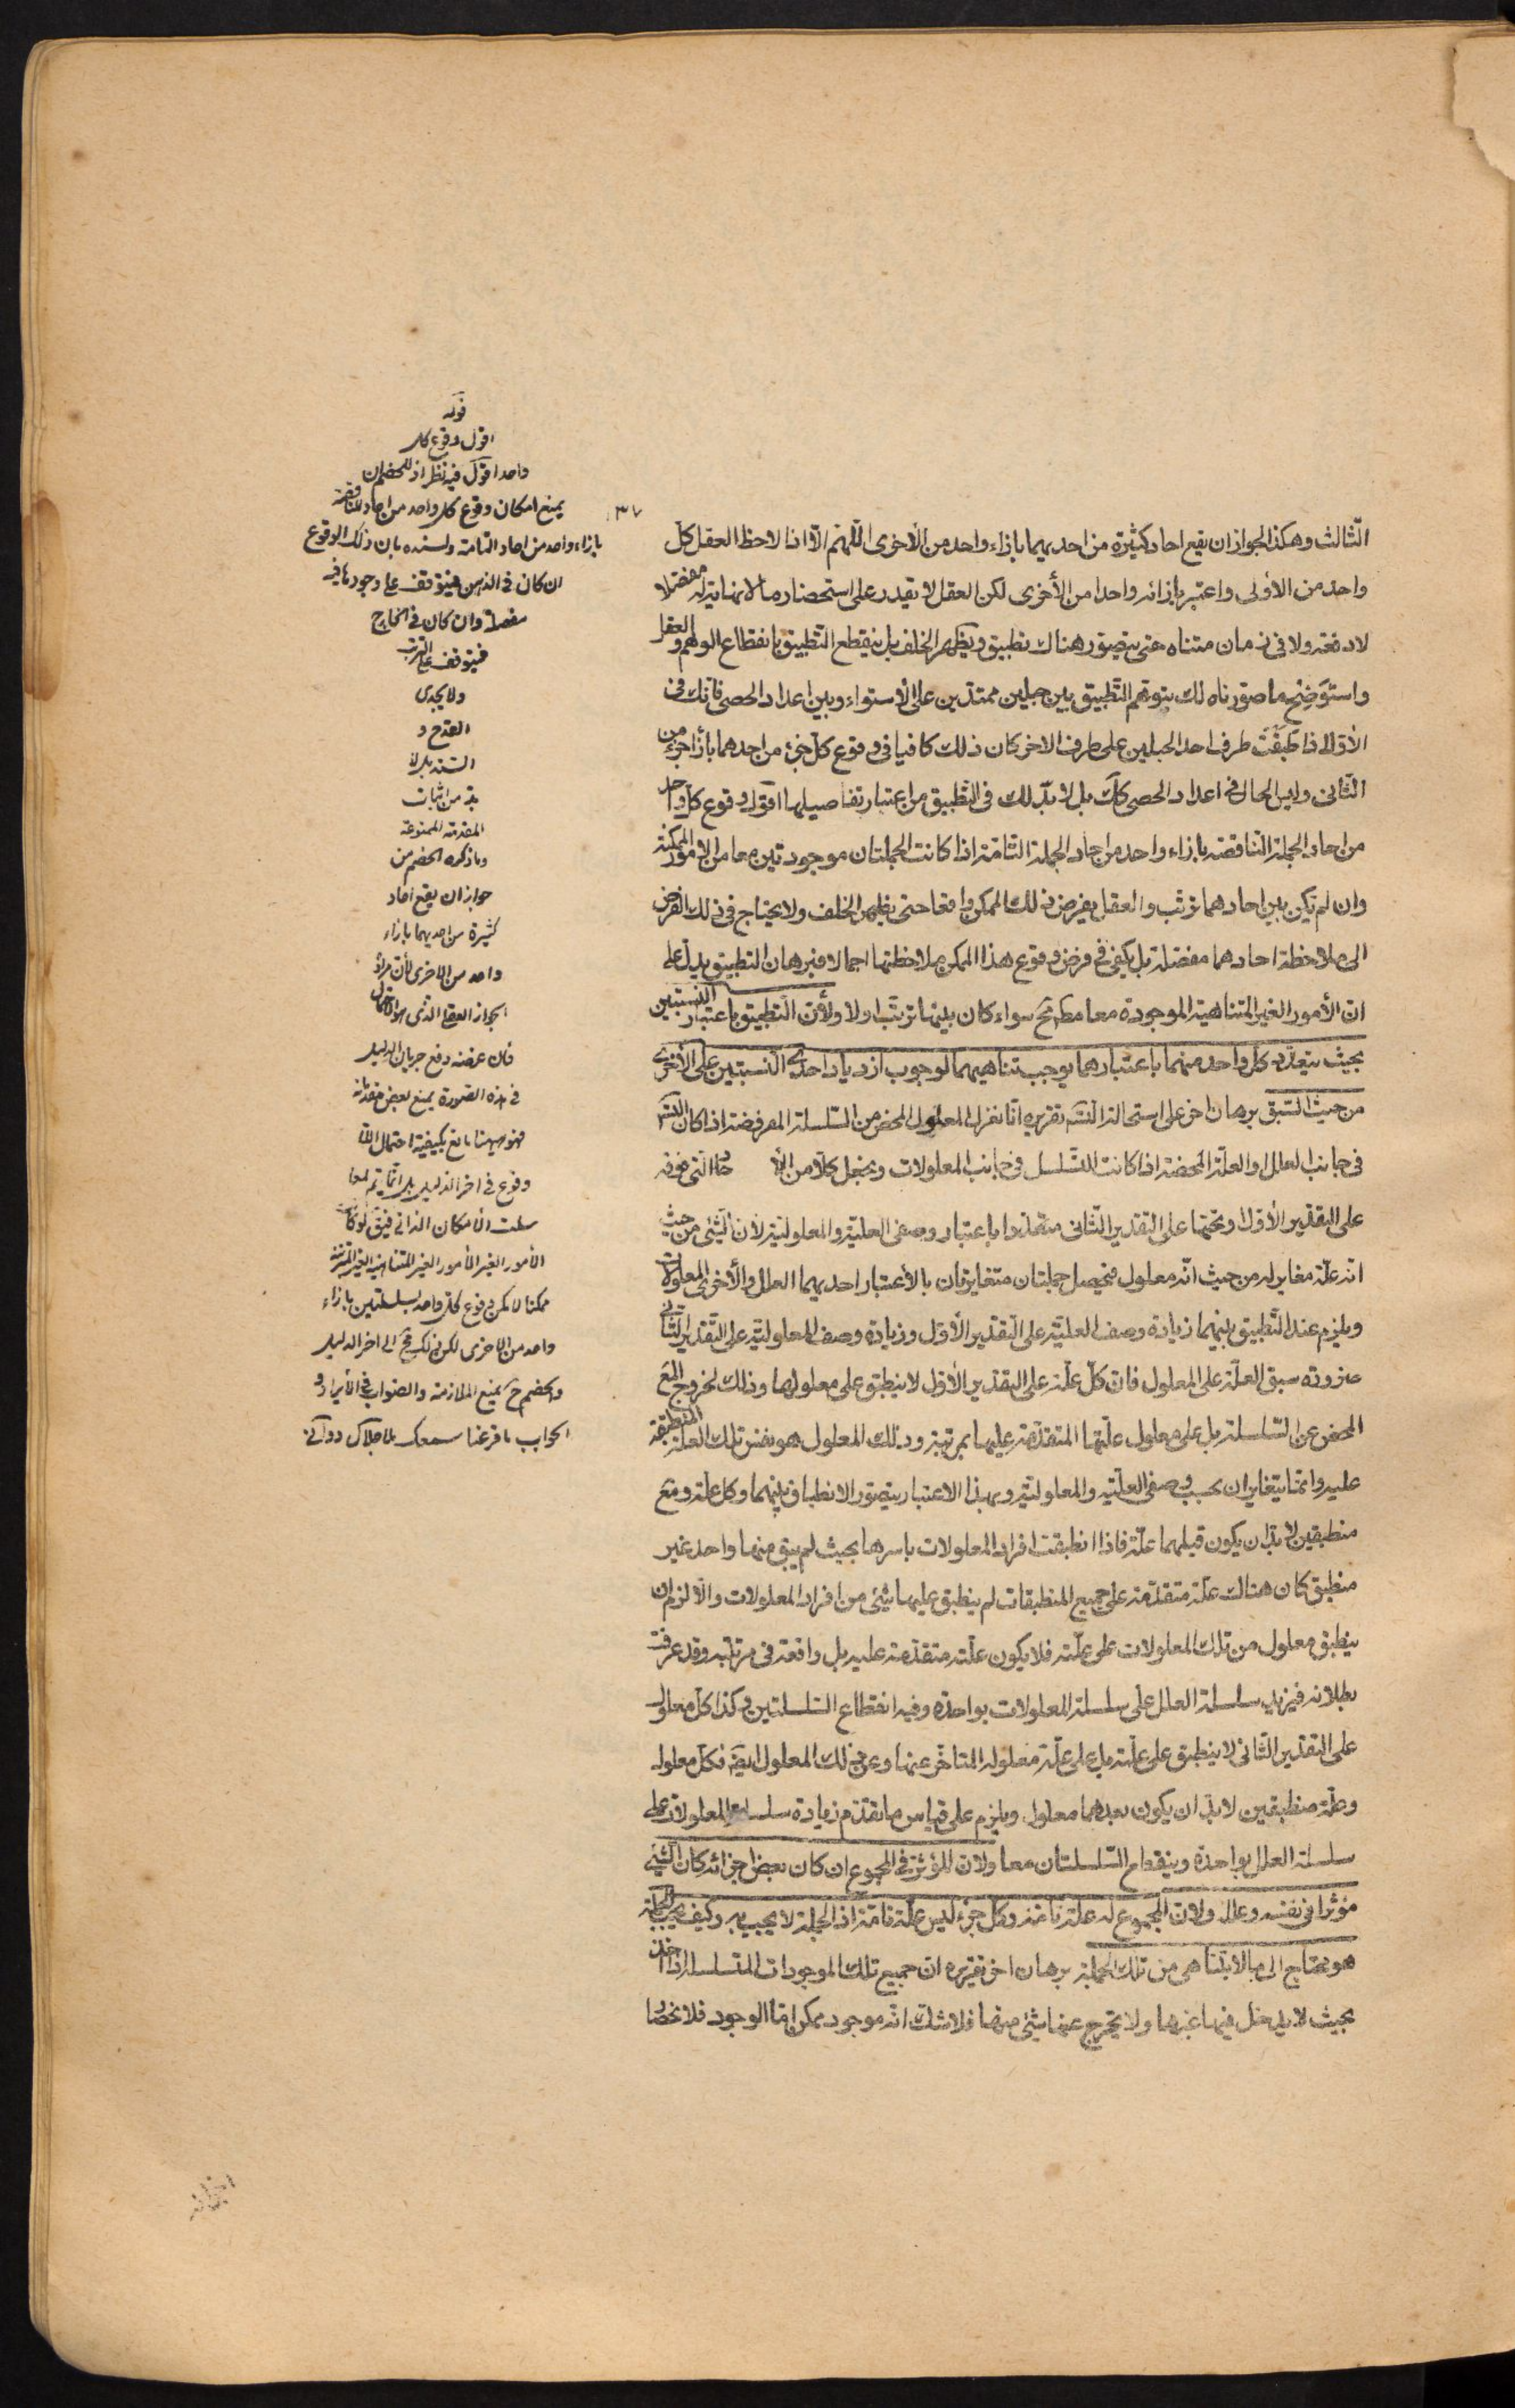 الثّالث وهكذا لجواز ان يقع احاد كثيرة من احديهما بازاء واحد من الأخرى اللّهمّ الّا اذا لاحظ العقل كلّ
واحد من الأولى واعتبر بازائه واحدا من الأخرى لكن العقل لا يقدر على استحضار ما لا نهاية له مفصّلا
لا دفعة ولا فى زمان متناه حتى يتصوّر هناك تطبيق ويظهر الخلف بل ينقطع التّطبيق بانقطاع الوهم والعقل
واستوضِح ما صوّرناه لك بتوهّم التّطبيق بين جبلين ممتدّين على الأستواء وبين اعداد الحصى فانّك فى
الأوّل اذا طبّقت طرف احد الجبلين على طرف الاخر كان ذلك كافيا فى وقوع كلّ جزء من احدهما بازاء جزء من
الثّانى وليس الحال فى اعداد الحصى كك بل لا بدّ لك فى التّطبيق من اعتبار تفاصيلها اقول وقوع كلّ واحد
من احاد الجملة النّاقصة بازاء واحد من احاد الجملة التّامّة اذا كانت الجملتان موجودتين معا من الامور الممكنة
وان لم يكن بين احادهما ترتّب والعقل يفرض ذلك الممكن واقعا حتى يظهر الخلف ولا يحتاج فى ذلك الفرض
الى ملاحظة احادهما مفصّلة بل يكفى فى فرض وقوع هذا الممكن ملاحظتها اجمالا فبرهان التطبيق يدلّ على
انّ الأمور الغير المتناهية الموجودة معا مطم مح سواء كان بينها ترتّب اولا ولأنّ التّطبيق باعتبار النسبتين
بحيث يتعدّد كلّ واحد منهما باعتبارهما يوجب تناهيهما لوجوب ازدياد احدى النّسبتين على الأخرى
من حيث السّبق برهان اخر على استحالة التّسَـ تقريره انّا نعزل المعلول المحض من السّلسلة المفروضة اذا كان التسَـ
فى جانب العلل او العلّة المحضة اذا كانت التّسلسل فى جانب المعلولات ونجعل كلّا من الآحاد الّتى فوقه
على التقدير الأوّل وتحتها على التقدير الثّانى متعدّدا باعتبار وصفى العليّة والمعلوليّة لأنّ الشّئ من حيث
انّه علّة مغاير له من حيث انّه معلول فيحصل جملتان متغايرتان بالأعتبار احديهما العلل والأخرى المعلولات
ويلزم عند التّطبيق بينهما زيادة وصف العليّة على التّقدير الأوّل وزيادة وصف المعلوليّة على التّقدير الثّانى
ضرورة سبق العلّة على المعلول فانّ كلّ علّة على التقدير الأوّل لا ينطبق على معلولها وذلك لخروج المع
المحض عن السّلسلة بل على معلول علّتها المتقدّمة عليها بمرتبة وذلك المعلول هو نفس تلك العلّة المنطبقة
عليه وانّما يتغايران بحسب وصفى العلّيّة والمعلوليّة وبهذا الاعتبار يتصوّر الانطباق بينهما وكل علّة ومع
منطبقين لا بدّ ان يكون قبلهما علّة فاذا انطبقت افراد المعلولات باسرها بحيث لم يبق منها واحد غير
منطبق كان هناك علّة متقدّمة على جميع المنطبقات لم ينطبق عليها شئ من افراد المعلولات والّا لزم ان
ينطبق معلول من تلك المعلولات على علّته فلا يكون علّته متقدّمة عليه بل واقعة فى مرتبته وقد عرفت
بطلانه فيزيد سلسلة العلل على سلسلة المعلولات بواحدة وفيه انقطاع السّلسلتين وكذا كلّ معلول
على التقدير الثّانى لا ينطبق على علّته بل على علّة معلوله المتاخّر عنها وعن ذلك المعلول ايضَه فكلّ معلول
وعلّة منطبقين لا بدّ ان يكون بعدهما معلول ويلزم على قياس ما تقدّم زيادة سلسلة المعلولات على
سلسلة العلل بواحدة وينقطع السّلسلتان معا ولانّ المؤثّر فى المجموع ان كان بعض اجزائه كان الشّئ
مؤثّرا فى نفسه وعلله ولانّ المجموع له علّة تامّة وكل جزء ليس علّة تامّة اذ الجملة لا يجب به وكيف يجب الجملة بشئ
هو محتاج الى ما لا يتناهى من تلك الجملة برهان اخر تقريره انّ جميع تلك الموجودات المتسلسلة اذا اخذ
بحيث لا يدخل فيها غيرها ولا يخرج عنها شئ منها فلا شكّ انّه موجود ممكن امّا الوجود فلانحصا
قوله
اقول وقوع كل
واحد اقول فيه نظر اذ للخصم ان
يمنع امكان وقوع كل واحد من احاد الناقصة
بازاء واحد من احاد التامة ولسنده بان ذلك الوقوع
ان كان فى الذهن فيتوقف على وجودها فيه
مفصلة وان كان فى الخارج
فيتوقف على الترتب
ولا يجدى
القدح و
السند بل لا
بد من اثبات
المقدمة الممنوعة
وما ذكره الخصم من
جواز ان يقع احاد
كثيرة من احديهما بازاء
واحد من الاخرى لأن مراده
الجواز العقلى الذى هو الاحتمال
فان غرضه دفع جريان الدليل
فى هذه الصورة بمنع بعض مقدماته
فهو ههنا مانع يكيفية احتمال
وقوع فى اخر الدليل بل انما يتم لما
سلمت الأمكان الذاتى
الأمور الغير الأمور الغير المتناهية الغير المترتبة
ممكنا لامكن وقوع كل واحد لسلسلتين بازاء
واحد من الاخرى لكن ذلك مح الى اخر الدليل
والخصم ح يمنع الملازمة والصواب فى الأيراد و
الجواب ما قرعنا سمعك